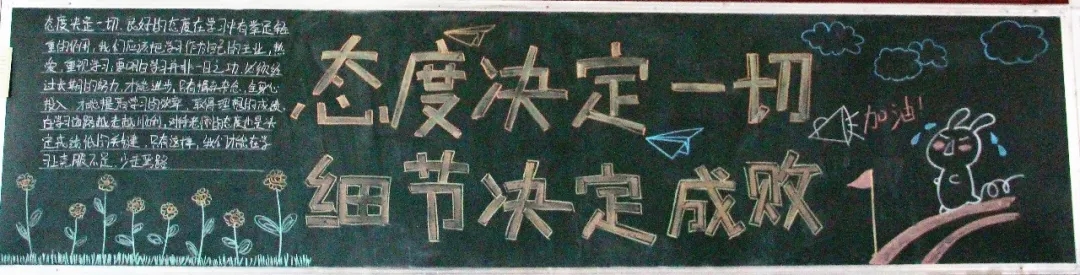 态度决定一切,良好的态度在学习中有举足轻
重的作用,我们应该把学习作为自己的主业,热
爱,重视学习,要明白学习并非一日之功,必须经
过长期的努力,才能进步,只有
投入,才能提高学习的效率,取得理想的成绩,
在学习的路越走越顺利,对待老师的态度也是决
定成绩的关键,只有这样,我们才能在学
习上克服不足,少走弯路
态度决定一切
细节决定成败
加油!